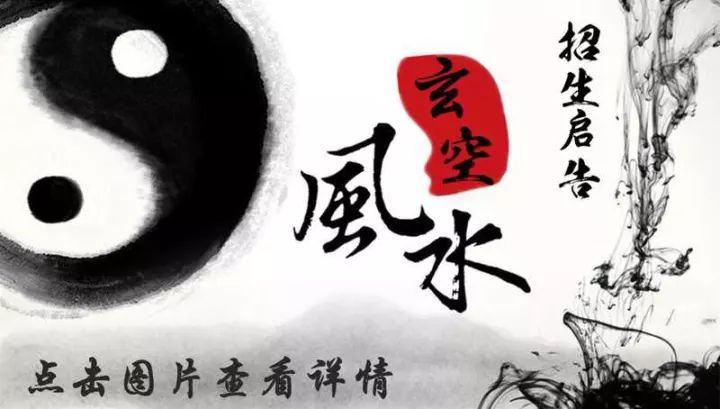 招生启告
玄空
風水
点击图片查看详情